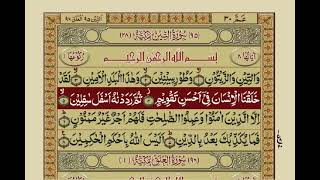 عـم ٣٠
(٩٥) سُوْرَةُ التِّيْنِ مَكِّيَّةٌ (٢٨)
بِسْمِ اللهِ الرَّحْمٰنِ الرَّحِيْمِ
وَالتِّيْنِ وَالزَّيْتُوْنِ وَطُوْرِ سِيْنِيْنَ وَهٰذَا الْبَلَدِ الْاَمِيْنِ لَقَدْ
خَلَقْنَا الْاِنْسَانَ فِيْٓ اَحْسَنِ تَقْوِيْمٍ ثُمَّ رَدَدْنٰهُ اَسْفَلَ سٰفِلِيْنَ
اِلَّا الَّذِيْنَ اٰمَنُوْا وَعَمِلُوا الصّٰلِحٰتِ فَلَهُمْ اَجْرٌ غَيْرُ مَمْنُوْنٍ
فَمَا يُكَذِّبُكَ بَعْدُ بِالدِّيْنِ اَلَيْسَ اللهُ بِاَحْكَمِ الْحٰكِمِيْنَ
(٩٦) سُوْرَةُ الْعَلَقِ مَكِّيَّةٌ (١)